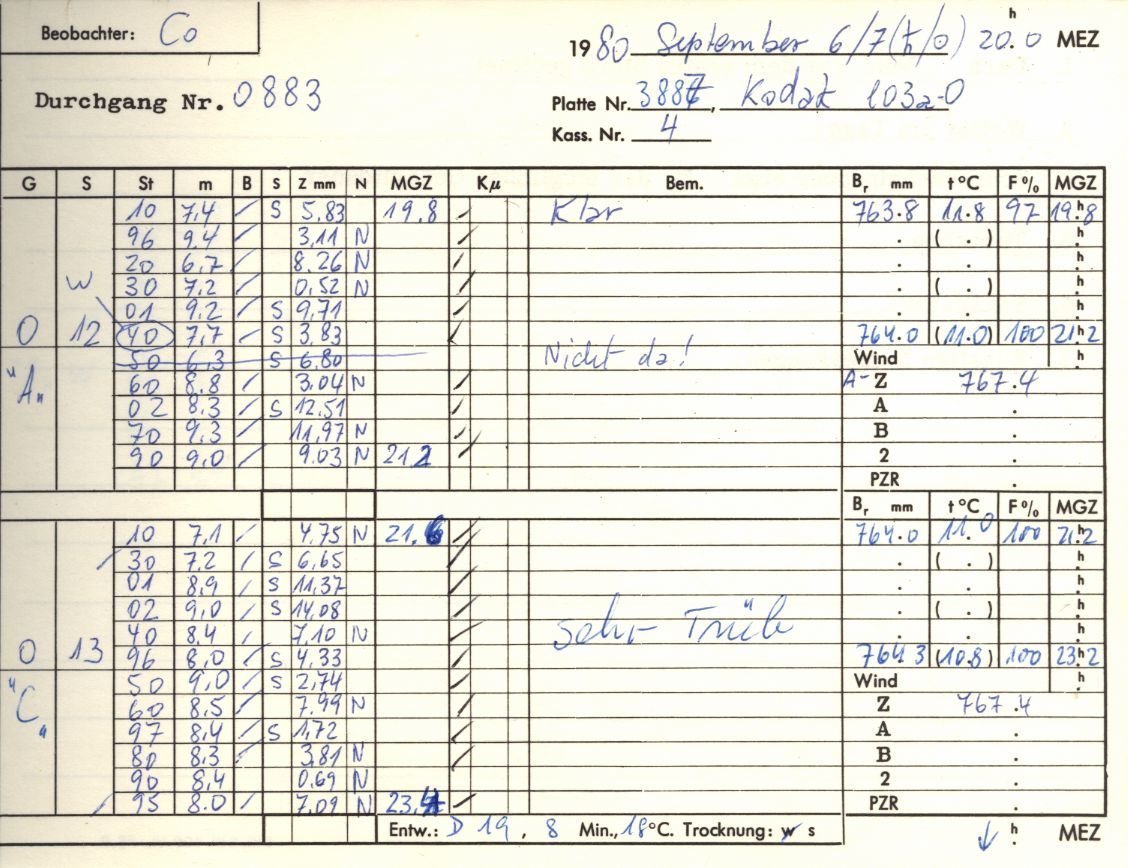 Beobachter: Co
19 80 September 6/7 (ħ/⊙) 20h.0 MEZ
Durchgang Nr. 0883
Platte Nr. 3887, Kodak 103a-O
Kass. Nr. 4
G S St m B S Z mm N MGZ Kμ Bem. Br mm t°C F% MGZ
10 7,4 / S 5,83 19,8 / Klar 763.8 11.8 97 19h.8
96 9,4 / 3,11 N / . ( . ) h.
20 6,7 / 8.26 N / . . h.
W 30 7,2 / 0,52 N / . ( . ) h.
01 9,2 / S 9,71 / . . h.
0 12 40 7,7 / S 3,83 / 764.0 (11.0) 100 21h.2
50 6,3 S 6,80 Nicht da! Wind h
"A" 60 8,8 / 3,04 N / A- Z 767.4
02 8,3 / S 12,51 / A .
70 9,3 / 11,97 N / B .
90 9,0 / 9.03 N 21.2 / 2 .
PZR .
Br mm t°C F% MGZ
10 7,1 / 4,75 N 21,6 / 764.0 11.0 100 21h.2
/ 30 7,2 / S 6,65 / . ( . ) h.
01 8,9 / S 11,37 / . . h.
02 9,0 / S 14,08 / sehr Trüb . ( . ) h.
40 8,4 / 7,10 N / . . h.
0 13 96 8,0 / S 4,33 / 764 3 (10.8) 100 23h.2
50 9,0 / S 2,74 / Wind h
"C" 60 8,5 / 7.99 N / Z 767.4
97 8,4 / S 1,72 / A .
80 8,3 / 3,81 N / B .
90 8,4 0,69 N 2 .
/ 95 8.0 / 7,09 N 23,4 / PZR .
Entw.: D 19, 8 Min., 18°C. Trocknung: w s ↓ h. MEZ